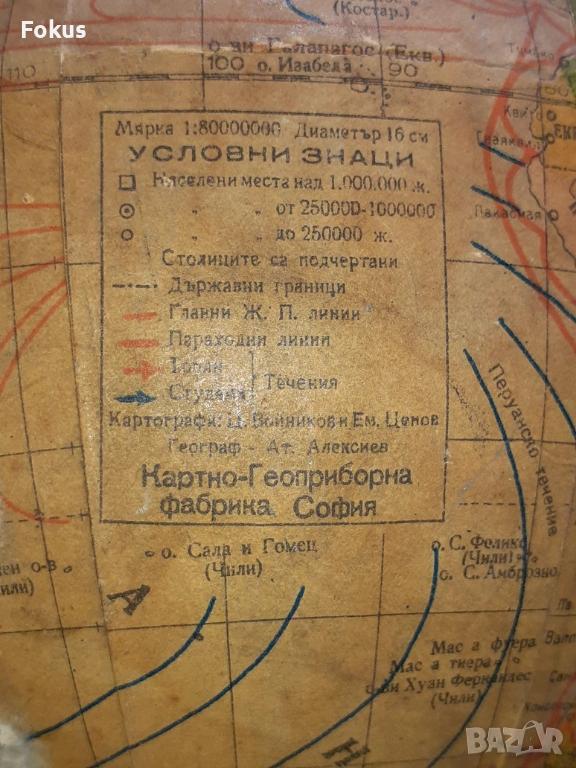 Fokus
(Костар.)
о-ви Галапагос (Екв.)
110 100 о. Изабела 90 80
Кито
Гваякил
ЕК
Мярка 1:80000000 Диаметър 16 см
УСЛОВНИ ЗНАЦИ
Населени места над 1.000.000 ж.
„ „ от 250000-1000000
„ „ до 250000 ж.
Столиците са подчертани
Държавни граници
Главни Ж. П. линии
Параходни линии
Топли
Студени
Течения
Картографи: Д. Войников и Ем. Ценов
Географ - Ат. Алексиев
Картно-Геоприборна
фабрика София
Перуанско течение
о. Сала и Гомец
(Чили)
о. С. Феликс
(Чили)
о. С. Амброзио
А
Мас а фуера
Мас а тиера
о-ви Хуан Фернандес
(Чили)
BAZAR